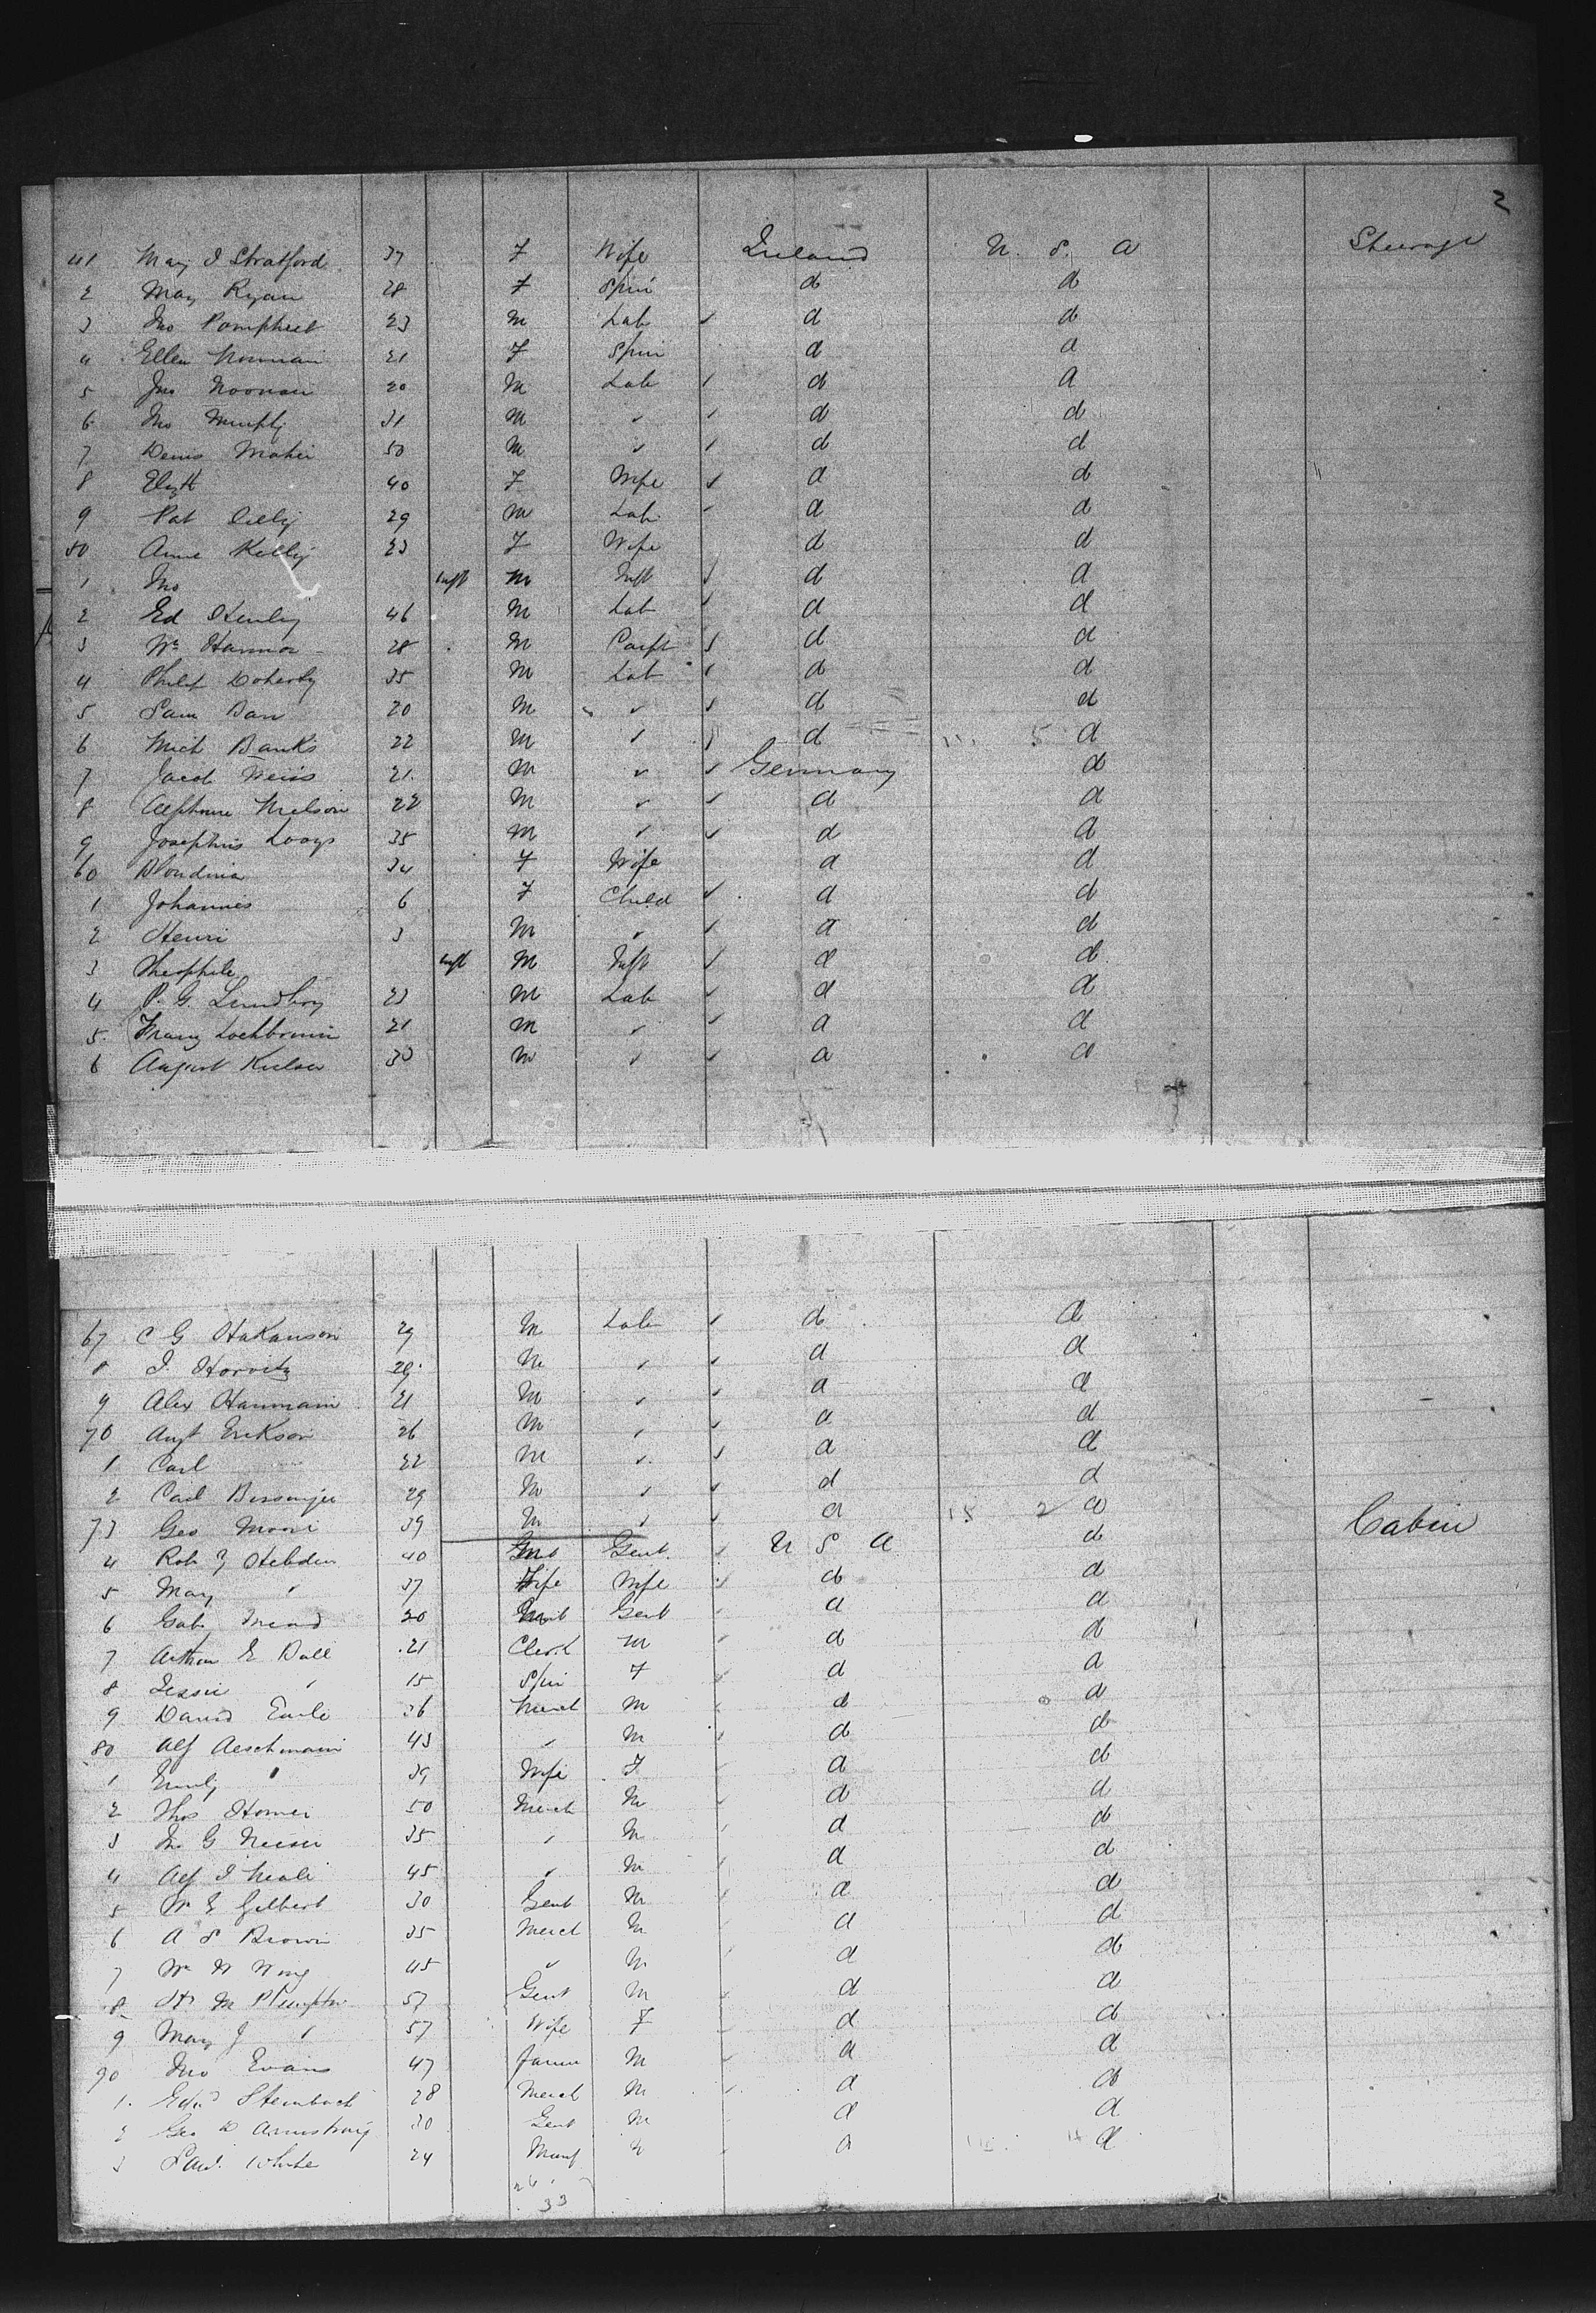 2
41 Mary I Stratford 37 F Wife Ireland U. S. A Steerage
2 Mary Ryan 28 F Spin do do
3 Jno Pomphret 23 M Lab ✓ do do
4 Ellen Noonan 21 F Spin do do
5 Jno Noonan 20 M Lab ✓ do do
6 Jno Murphy 31 M ✓ ✓ do do
7 Denis Maher 50 M ✓ ✓ do do
8 Elizth 40 F Wife ✓ do do
9 Pat 29 M Lab ✓ do do
50 Anne Kelly 23 F Wife do do
1 Jno inft M Inft ✓ do do
2 Ed Henley 46 M Lab ✓ do do
3 Wm Hannon 28 M Carpt ✓ do do
4 Philip Doherty 35 M Lab ✓ do do
5 Sam Dan 20 M ✓ ✓ do do
6 Mich Banks 22 M ✓ ✓ do do
7 Jacob Weiss 21 M ✓ ✓ Germany do
8 Alphonse Nielson 22 M ✓ ✓ do do
9 Josephus Looys 35 M ✓ ✓ do do
60 Blondina 34 F Wife do do
1 Johannes 6 F Child ✓ do do
2 Henri 3 M ✓ ✓ do do
3 Theophile inft M Inft ✓ do do
4 P. G. Lundborg 23 M Lab ✓ do do
5 Franz Lochbrunn 21 M ✓ ✓ do do
6 August 30 M ✓ ✓ do do
67 C G Hakanson 29 M Lab ✓ do do
8 I. Horvitz 29 M ✓ ✓ do do
9 Alex Hanmann 21 M ✓ ✓ do do
70 Augt Erikson 26 M ✓ ✓ do do
1 Carl 22 M ✓ ✓ do do
2 Carl 29 M ✓ ✓ do do
73 Geo Moore 39 M ✓ ✓ do do
4 Rob Y Hebden 40 Gent ✓ U S A do Cabin
5 Mary " 37 Wife ✓ do do
6 Gab Mead 20 Gent do do
7 Arthur E Dall 21 Clerk M do do
8 Jessie " 15 Spin F do do
9 David Earle 26 Merch M do do
80 Alf Aeschmann 43 " M do do
1 Emily " 39 Wife F do do
2 Thos Homer 50 Merch M do do
3 G 35 " M do do
4 Alf I Neale 45 " M do do
5 W E Gilbert 30 Gent M do do
6 A S Brown 35 Merch M do do
7 Wm W Wong 45 " M do do
8 H M Plumpton 57 Gent M do do
9 Mary J " 57 Wife F do do
90 Jno Evans 47 farmer M do do
1 Edwd Steinbach 28 Merch M do do
2 Geo W Armstrong 30 Gent M do do
3 White 24 Manf M do do
33